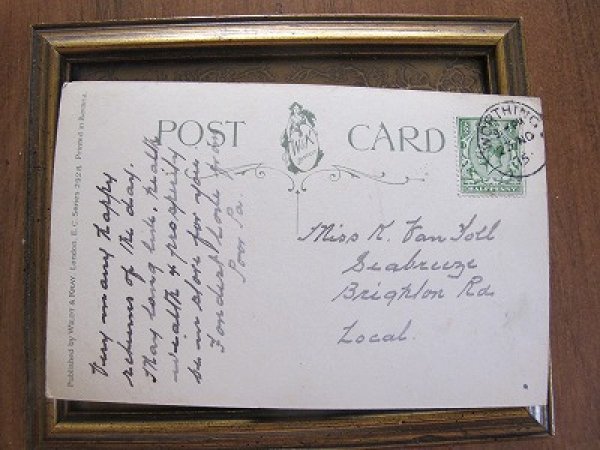 Published by WILDT & KRAY, London, E.C. Series 2928. Printed in Bavaria.
POST CARD
W&K
WORTHING
NO
15
HALFPENNY
Very many happy
returns of the day.
May long life, health
wealth & prosperity
be in store for you
Fondest love from
Poor Pa.
Miss K. Van Toll
Seabreeze
Brighton Rd
Local.